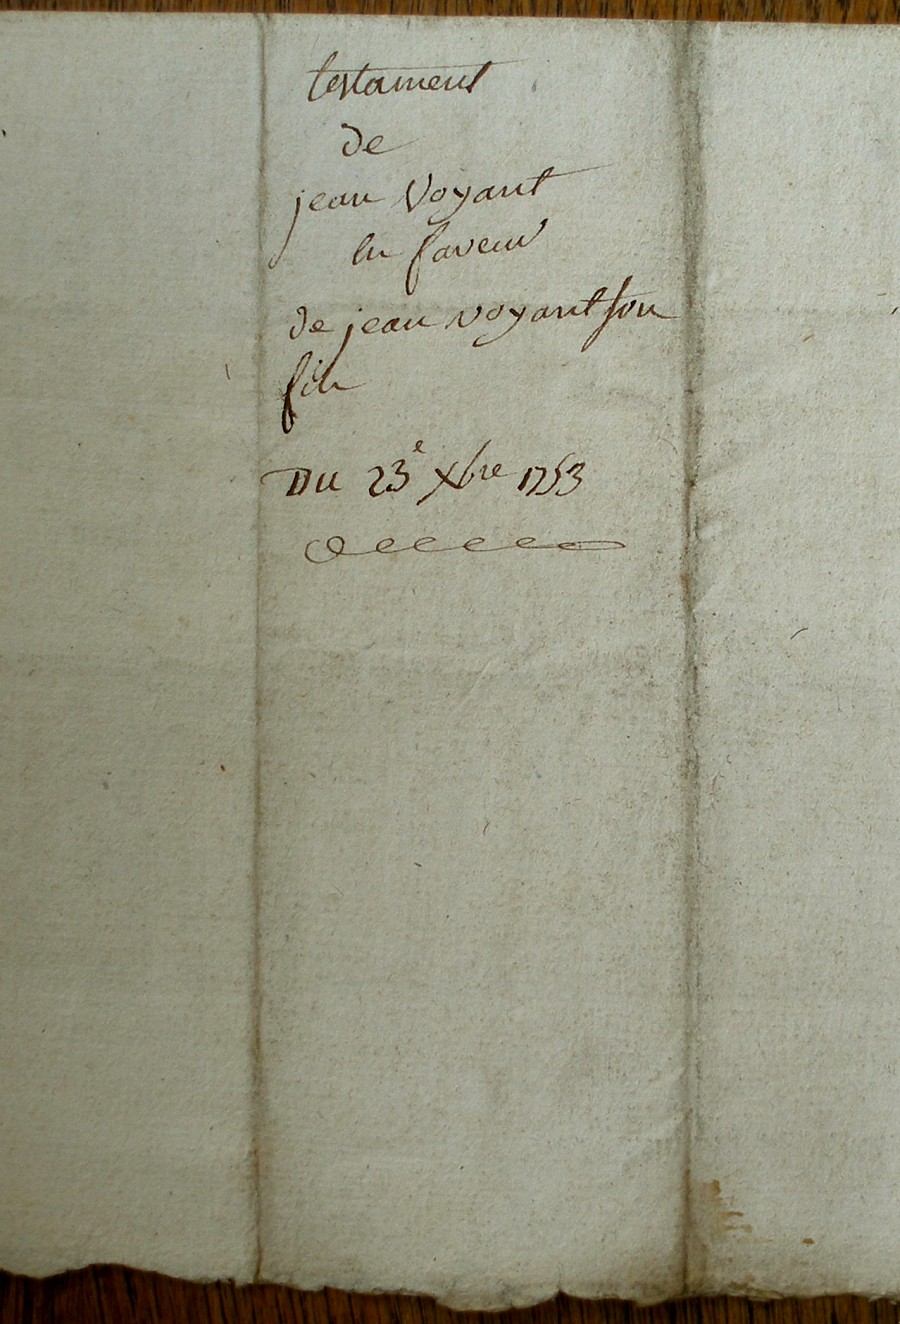 testament
de
jean Voyant
en faveur
de jean voyant son
fils
Du 23e Xbre 1753